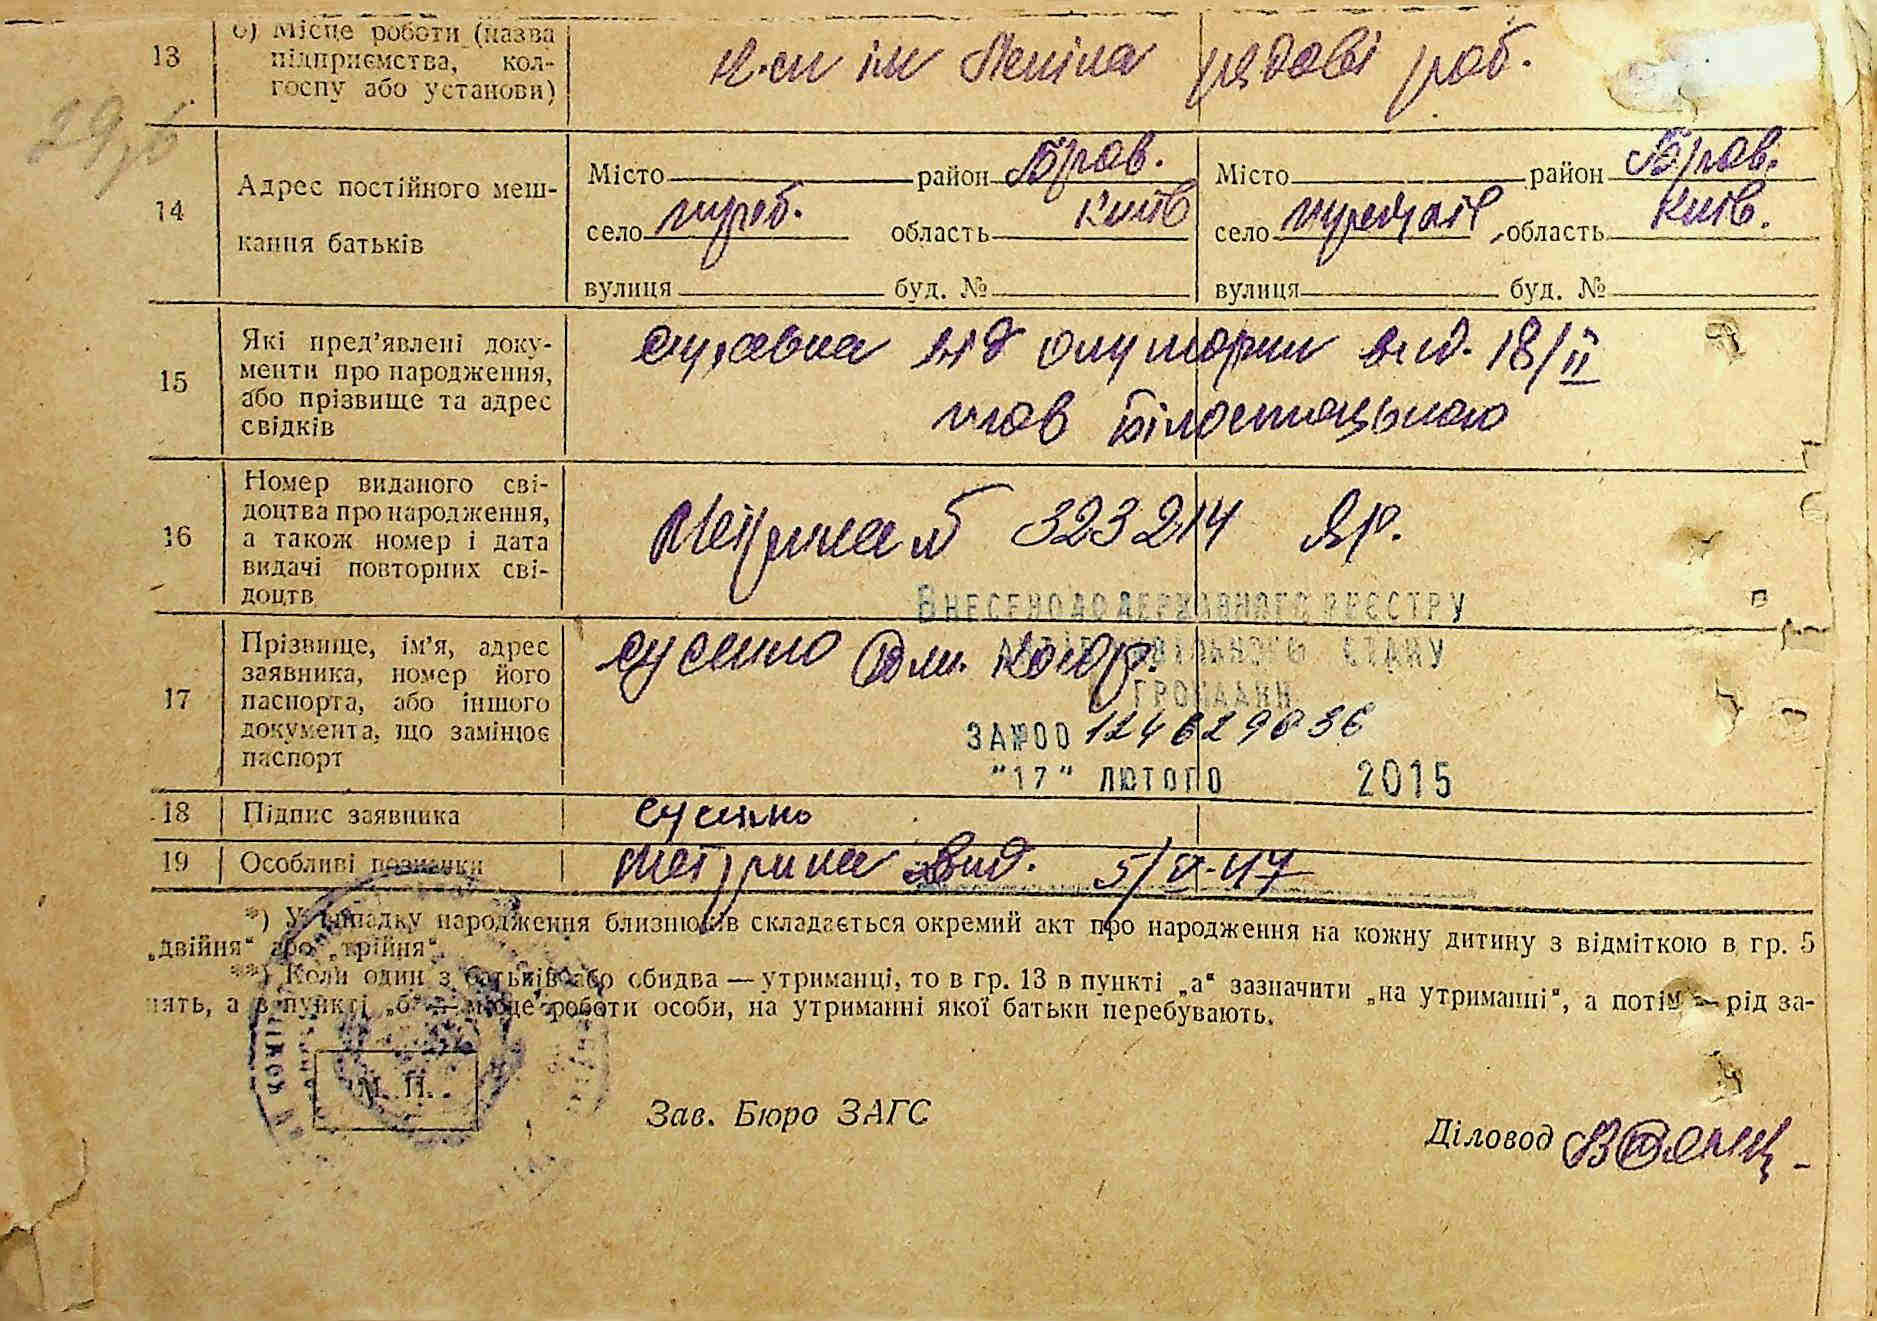 13 б) Місце роботи (назва підприємства, колгоспу або установи) ім Леніна рядові роб.
29
14 Адрес постійного мешкання батьків
Місто район Бров. Місто район Бров.
село треб. область Київ село требухів область Київ.
вулиця буд. № вулиця буд. №
15 Які пред’явлені документи про народження, або прізвище та адрес свідків
справка від акушорки вид. 18/II
тов Білостоцькою
16 Номер виданого свідоцтва про народження, а також номер і дата видачі повторних свідоцтв
Метрика № 323214 ЯР.
Внесено до державного реєстру
актів цивільного стану
громадян
17 Прізвище, ім’я, адрес заявника, номер його паспорта, або іншого документа, що замінює паспорт
Сусенко
за №00124629036
"17" лютого 2015
18 Підпис заявника Сусенко
19 Особливі позначки Метрика вид. 5/V-47
*) У випадку народження близнюків складається окремий акт про народження на кожну дитину з відміткою в гр. 5
„двійня“ або „трійня“.
**) Коли один з батьків або обидва — утриманці, то в гр. 13 в пункті „а“ зазначити „на утриманні“, а потім — рід за-
нять, а в пункті „б“ — місце роботи особи, на утриманні якої батьки перебувають.
М. П.
Зав. Бюро ЗАГС
Діловод